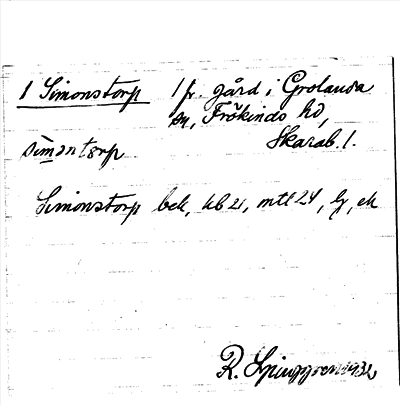 1 Simonstorp 1 fr. gård i Grolanda
sn, Frökinds hd,
Skarab. l.
simantorp
Simonstorp bek, kb 21, mtl 24, lg, ek
R. Ljunggren 1932